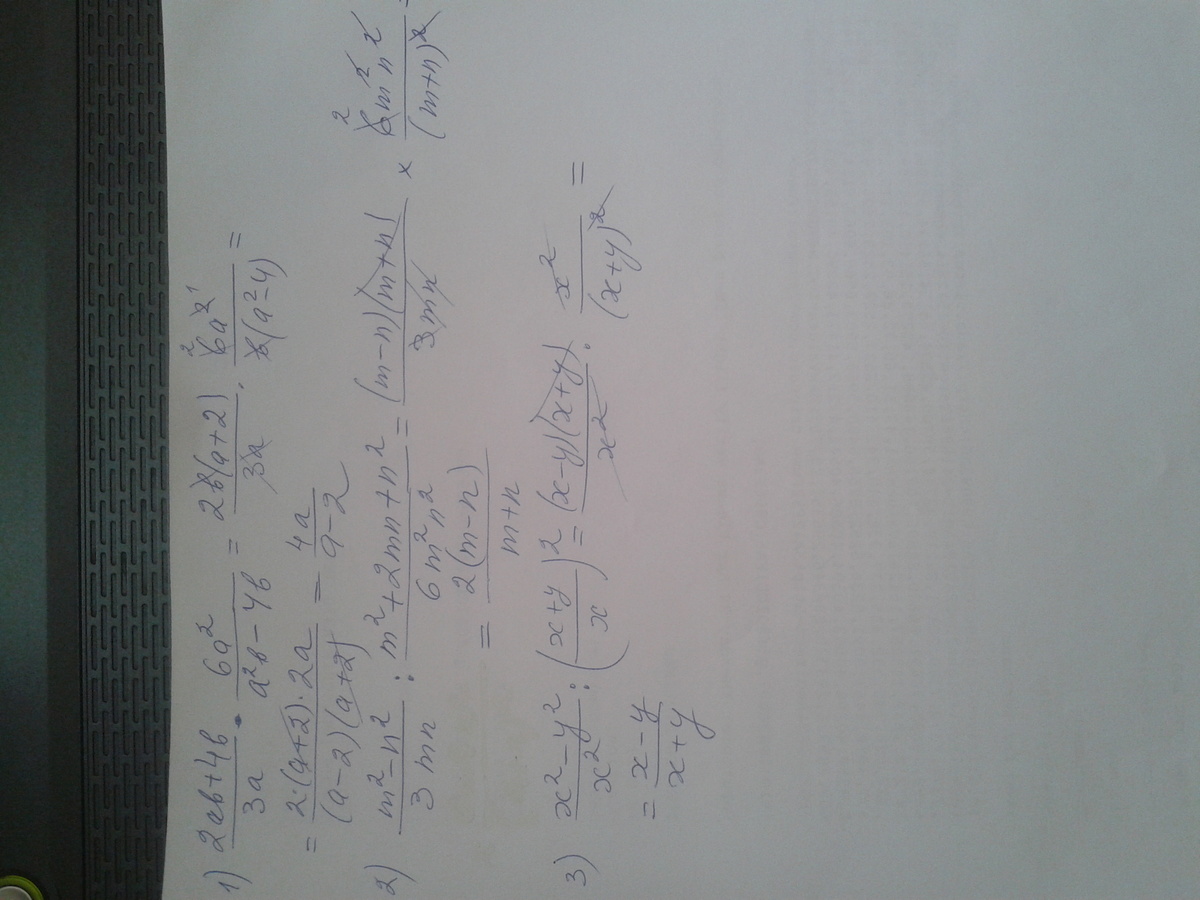 1) (2ab+4b)/(3a) · (6a²)/(a²b−4b) = (2b(a+2))/(3a) · (6a²)/(b(a²−4)) =
= (2·(a+2)·2a)/((a−2)(a+2)) = (4a)/(a−2)
2) (m²−n²)/(3mn) : (m²+2mn+n²)/(6m²n²) = ((m−n)(m+n))/(3mn) × (6m²n²)/((m+n)²)
= (2(m−n))/(m+n)
3) (x²−y²)/(x²) : ((x+y)/(x))² = ((x−y)(x+y))/(x²) · (x²)/((x+y)²) =
= (x−y)/(x+y)